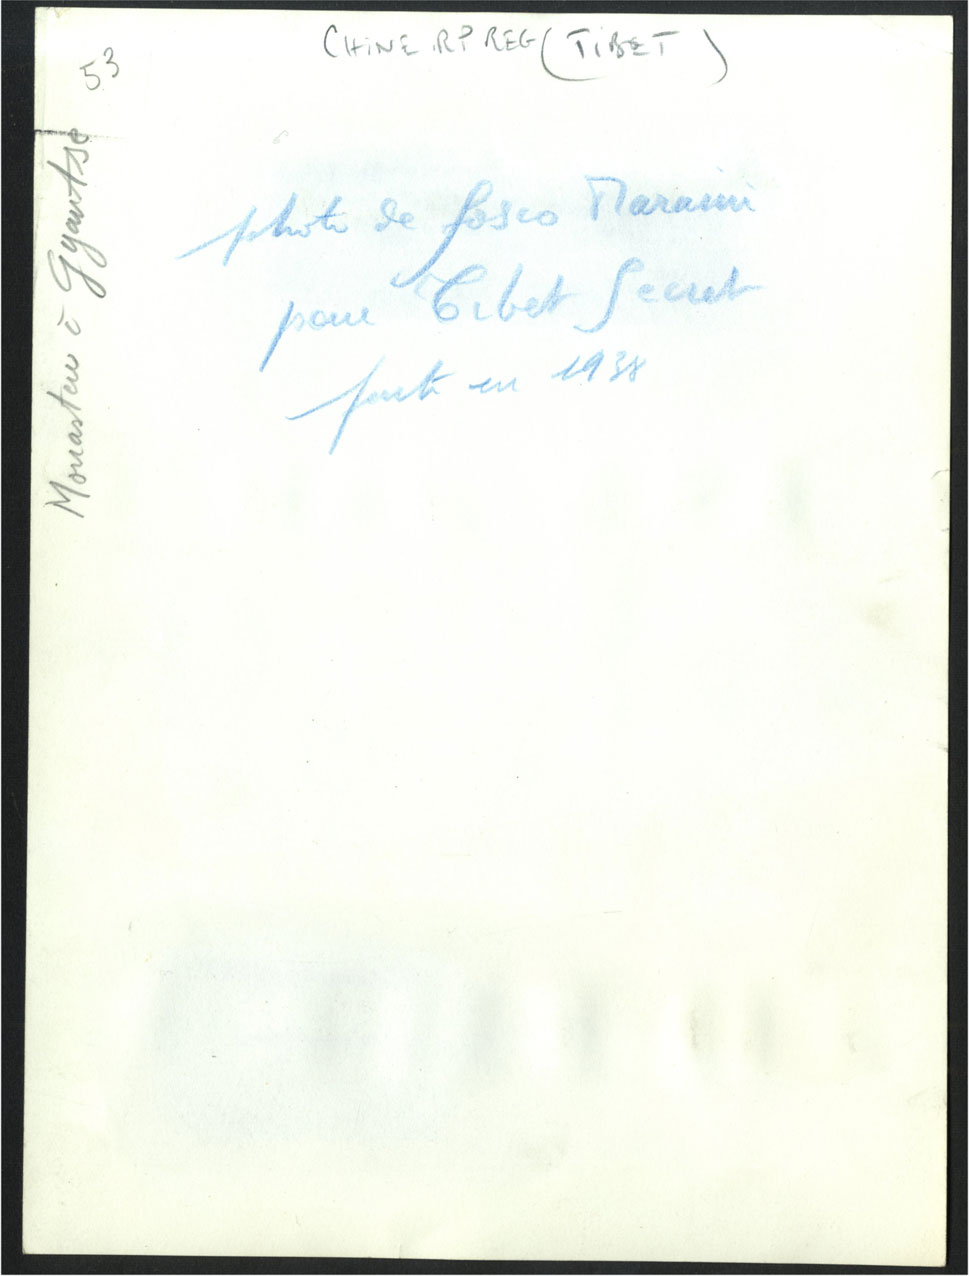 CHINE RP REG (TIBET)
53
Monastère à Gyantse
photo de Fosco Maraini
pour Tibet Secret
faite en 1938